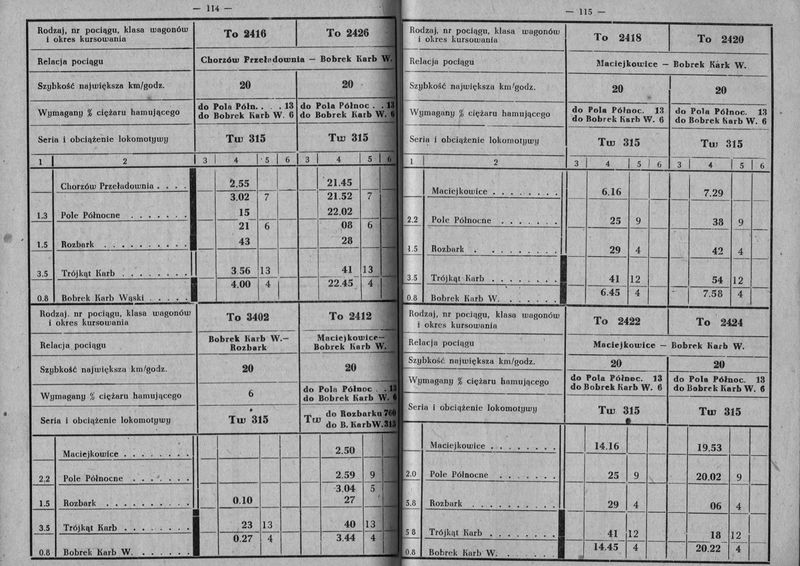 — 114 —
Rodzaj, nr pociągu, klasa wagonów
i okres kursowania
To 2416 To 2426
Relacja pociągu
Chorzów Przeładownia — Bobrek Karb W.
Szybkość największa km/godz.
20 20
Wymagany % ciężaru hamującego
do Pola Półn. . . . 13 do Pola Północ . . 13
do Bobrek Karb W. 6 do Bobrek Karb W. 6
Seria i obciążenie lokomotywy
Tw 315 Tw 315
1 2 3 4 5 6 3 4 5 6
Chorzów Przeładownia . . . . 2.55 21.45
3.02 7 21.52 7
1.3 Pole Północne . . . . . . . 15 22.02
21 6 08 6
1.5 Rozbark . . . . . . . . . . 43 28
3.5 Trójkąt Karb . . . . . . . . 3 56 13 41 13
4.00 4 22.45 4
0.8 Bobrek Karb Wąski . . . . .
Rodzaj, nr pociągu, klasa wagonów
i okres kursowania
To 3402 To 2412
Relacja pociągu
Bobrek Karb W.— Maciejkowice—
Rozbark Bobrek Karb W.
Szybkość największa km/godz.
20 20
Wymagany % ciężaru hamującego
6
do Pola Północ . . 13
do Bobrek Karb W. 6
Seria i obciążenie lokomotywy
Tw 315
Tw do Rozbarku 760
do B. Karb W. 315
Maciejkowice . . . . . . . . 2.50
2.2 Pole Północne . . . . . . . 2.59 9
3.04 5
1.5 Rozbark . . . . . . . . . . 0.10 27
3.5 Trójkąt Karb . . . . . . . . 23 13 40 13
0.27 4 3.44 4
0.8 Bobrek Karb W. . . . . . .
— 115 —
Rodzaj, nr pociągu, klasa wagonów
i okres kursowania
To 2418 To 2420
Relacja pociągu
Maciejkowice — Bobrek Kark W.
Szybkość największa km/godz.
20 20
Wymagany % ciężaru hamującego
do Pola Północ. 13 do Pola Północ. 13
do Bobrek Karb W. 6 do Bobrek Karb W. 6
Seria i obciążenie lokomotywy
Tw 315 Tw 315
1 2 3 4 5 6 3 4 5 6
Maciejkowice . . . . . . . . 6.16 7.29
2.2 Pole Północne . . . . . . . 25 9 38 9
1.5 Rozbark . . . . . . . . . 29 4 42 4
3.5 Trójkąt Karb . . . . . . . . 41 12 54 12
6.45 4 7.58 4
0.8 Bobrek Karb W. . . . . . .
Rodzaj, nr pociągu, klasa wagonów
i okres kursowania
To 2422 To 2424
Relacja pociągu
Maciejkowice — Bobrek Karb W.
Szybkość największa km/godz.
20 20
Wymagany % ciężaru hamującego
do Pola Północ. 13 do Pola Północ. 13
do Bobrek Karb W. 6 do Bobrek Karb W. 6
Seria i obciążenie lokomotywy
Tw 315 Tw 315
Maciejkowice . . . . . . . 14.16 19.53
2.0 Pole Północne . . . . . . . 25 9 20.02 9
5.8 Rozbark . . . . . . . . . . 29 4 06 4
5 8 Trójkąt Karb . . . . . . . . 41 12 18 12
14.45 4 20.22 4
0.8 Bobrek Karb W. . . . . . .